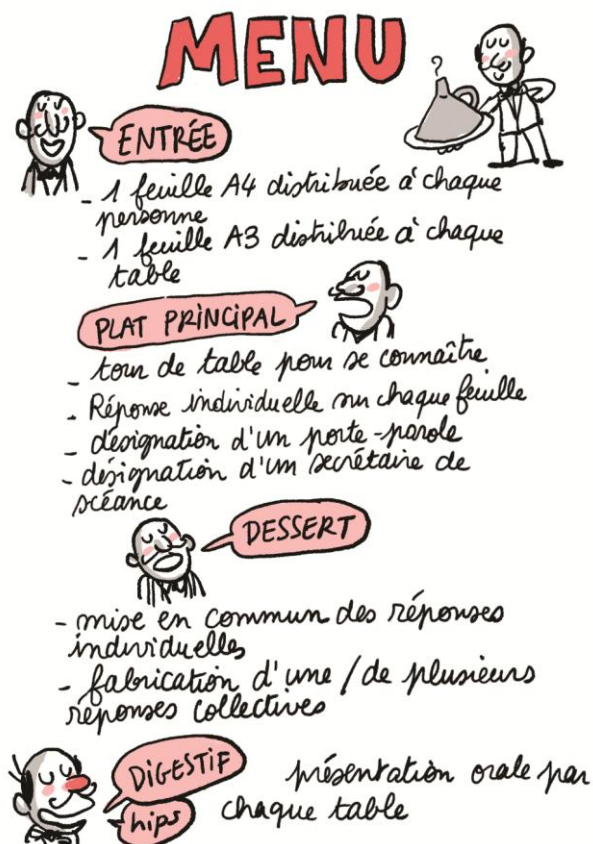 MENU
?
ENTRÉE
- 1 feuille A4 distribuée à chaque
personne
- 1 feuille A3 distribuée à chaque
table
PLAT PRINCIPAL
- tour de table pour se connaître
- Réponse individuelle sur chaque feuille
- désignation d'un porte-parole
- désignation d'un secrétaire de
scéance
DESSERT
- mise en commun des réponses
individuelles
- fabrication d'une / de plusieurs
réponses collectives
DIGESTIF
présentation orale par
hips
chaque table